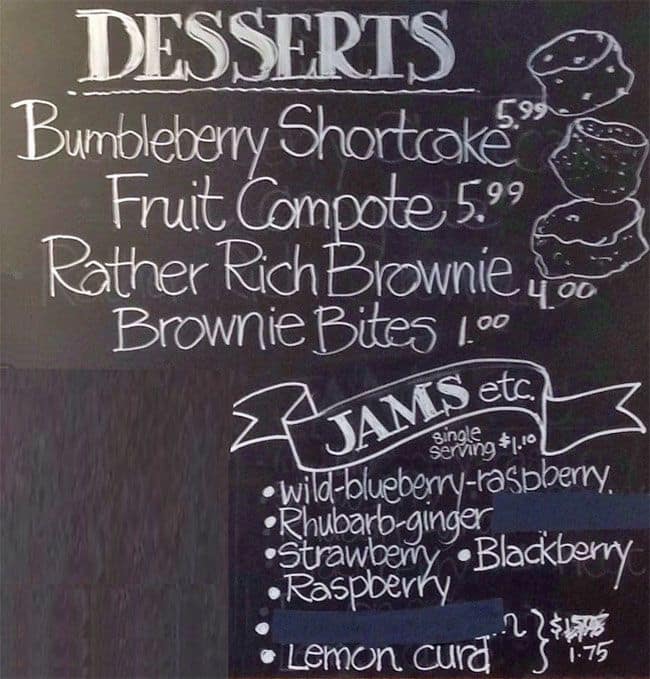 DESSERTS
Bumbleberry Shortcake 5.99
Fruit Compote 5.99
Rather Rich Brownie 4.00
Brownie Bites 1.00
JAMS etc.
single
serving $1.10
• wild-blueberry-raspberry
• Rhubarb-ginger
• Strawberry • Blackberry
• Raspberry
•
• Lemon curd } $ 1.75